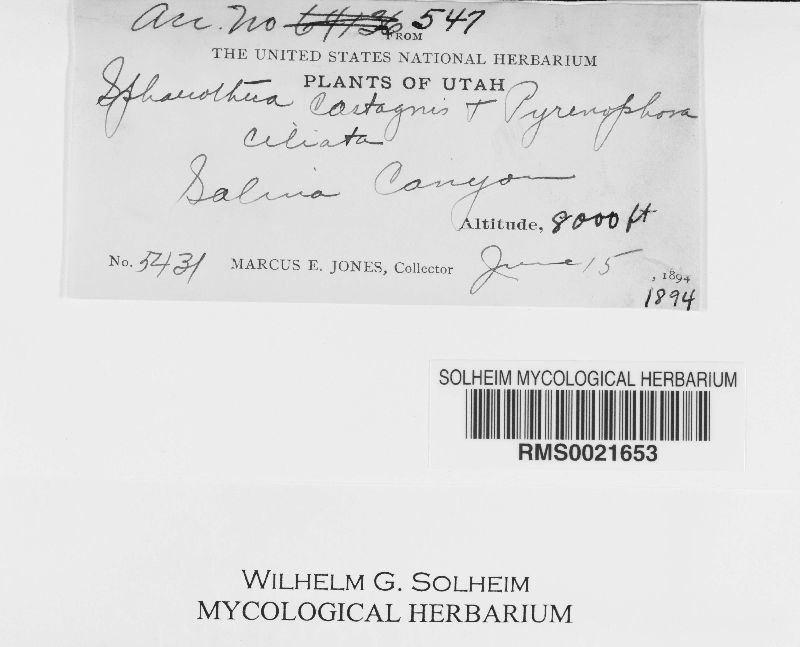 Acc. No 547
FROM
THE UNITED STATES NATIONAL HERBARIUM
PLANTS OF UTAH
Sphaerotheca Castagnis + Pyrenophora
ciliata
Salina Canyon
Altitude, 8000 ft
No. 5431 MARCUS E. JONES, Collector June 15, 1894
1894
SOLHEIM MYCOLOGICAL HERBARIUM
RMS0021653
WILHELM G. SOLHEIM
MYCOLOGICAL HERBARIUM